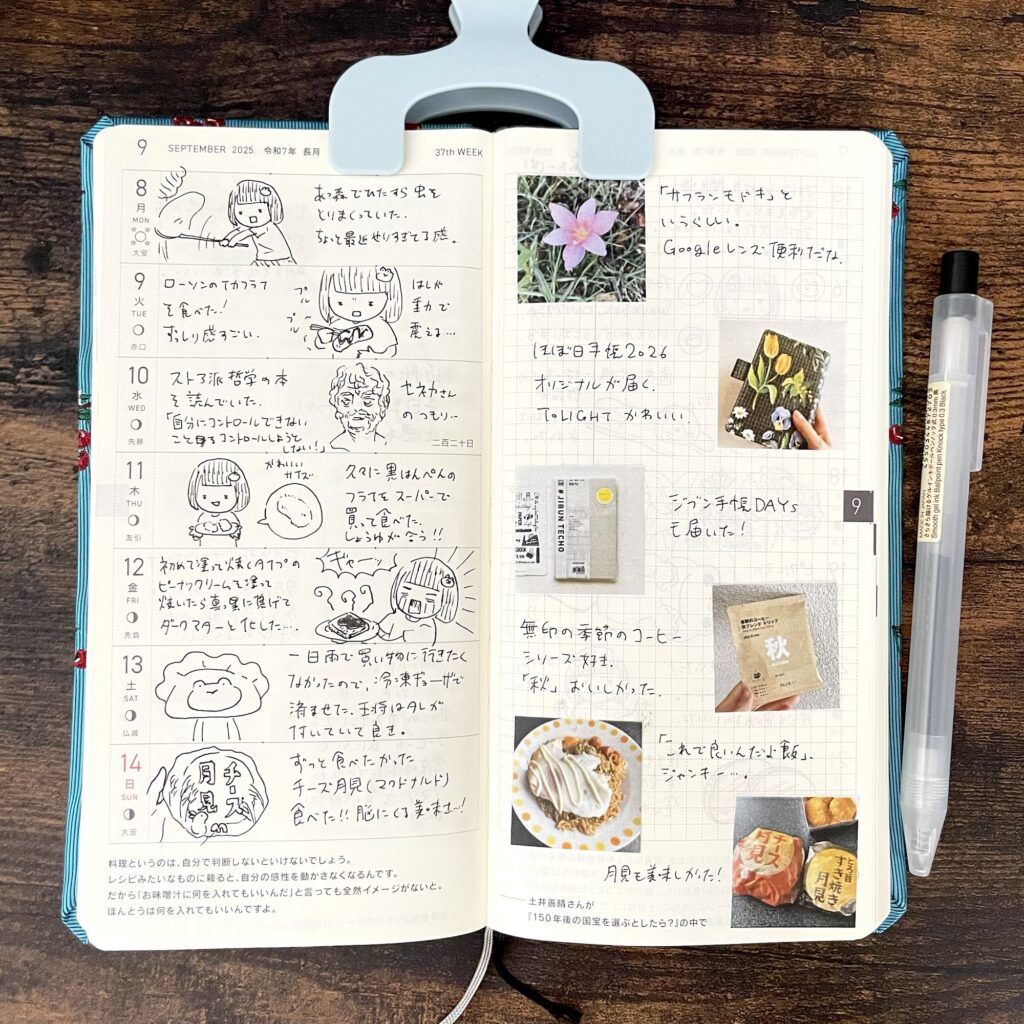 9 SEPTEMBER 2025 令和7年 長月 37th WEEK
8
月
MON
大安
あつ森でひたすら虫を
とりまくっていた.
ちょっと最近やりすぎてる感。
9
火
TUE
赤口
ローソンのイカフライ
を食べた!
ずっしり感すごい.
プル
プル
はしが
重力で
震える…
10
水
WED
先勝
ストア派哲学の本
を読んでいた.
「自分にコントロールできない
ことをコントロールしようと
しない!」
セネカさん
のつもり…
二百二十日
11
木
THU
友引
かわいい
サイズ
久々に黒はんぺんの
フライをスーパーで
買って食べた.
しょうゆが合う!!
12
金
FRI
先負
初めて塗って焼くタイプの
ピーナックリームを塗って
焼いたら真っ黒に焦げて
ダークマターと化した….
ギャーッ
13
土
SAT
仏滅
一日雨で買い物に行きたく
なかったので,冷凍ギョーザで
済ませた.王将はタレが
付いていて良き。
14
日
SUN
大安
チーズ
月見
ずっと食べたかった
チーズ月見(マクドナルド)
食べた!!脳にくる美味さ…!
料理というのは、自分で判断しないといけないでしょう。
レシピみたいなものに頼ると、自分の感性を動かさなくなるんです。
だから「お味噌汁に何を入れてもいいんだ」と言っても全然イメージがないと。
ほんとうは何を入れてもいいんですよ。
「サフランモドキ」と
いうらしい.
Googleレンズ便利だな.
ほぼ日手帳2026
オリジナルが届く.
TO LIGHT かわいい
# JIBUN TECHO
ジブン手帳DAYs
も届いた!
9
無印の季節のコーヒー
シリーズ好き.
「秋」おいしかった.
季節のコーヒー
秋ブレンド ドリップ
秋
「これで良いんだよ飯」、
ジャンキー….
月見も美味しかった!
チーズ
月見
とろ旨
すき焼き
月見
土井善晴さんが
『150年後の国宝を選ぶとしたら?』の中で
さらさら描けるゲルインキボールペンノック式 0.3mm 黒
Smooth gel ink Ballpoint pen Knock type 0.3 Black